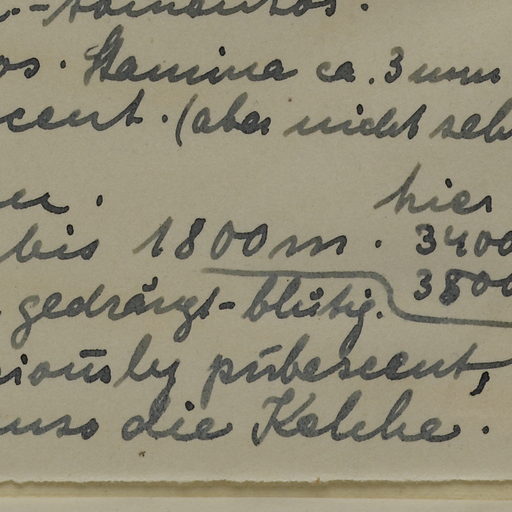 -tomentos.
os. Stamina ca. 3 mm
cent. (aber nicht seh
en. hier
bis 1800 m. 3400
3800
gedrängt-blütig.
iously pubescent,
enso die Kelche.